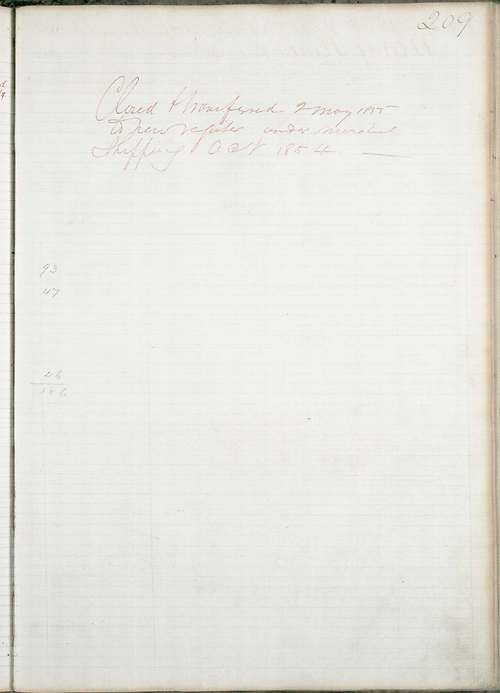 209
Closed & transferred 2 May 1855
to new register under merchant
Shipping Act 1854
93
47
46
186